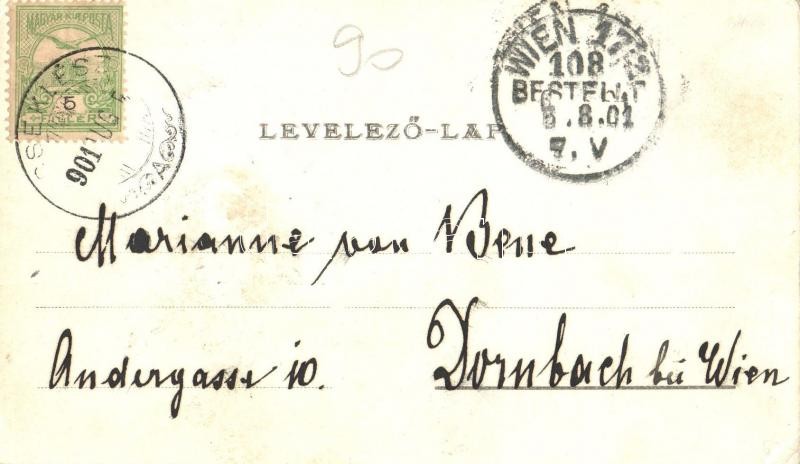 MAGYAR KIR. POSTA
5
FILLÉR
901 AUG
90
WIEN 17/2
108
BESTELLT
5.8.01
7. V
LEVELEZŐ-LAP
Marianne von Bene
Andergasse 10.
Dornbach bei Wien